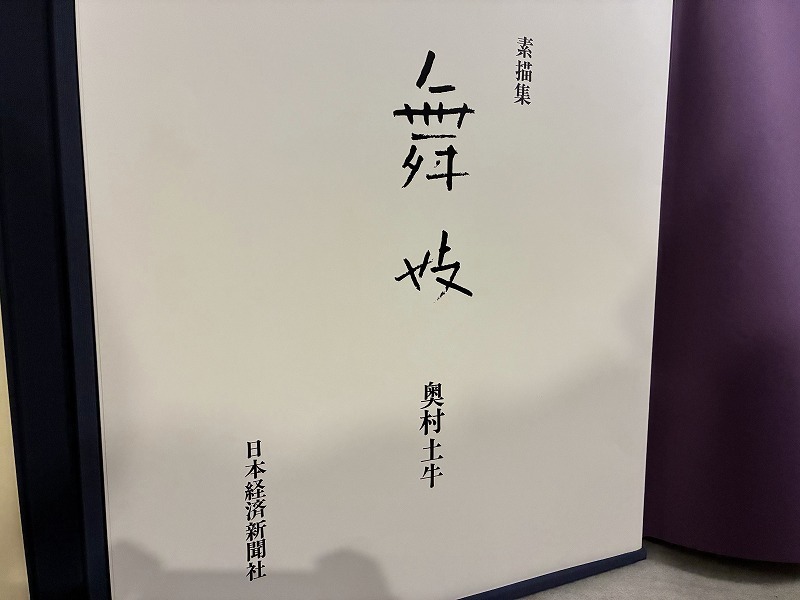 素描集
舞妓
奥村土牛
日本経済新聞社